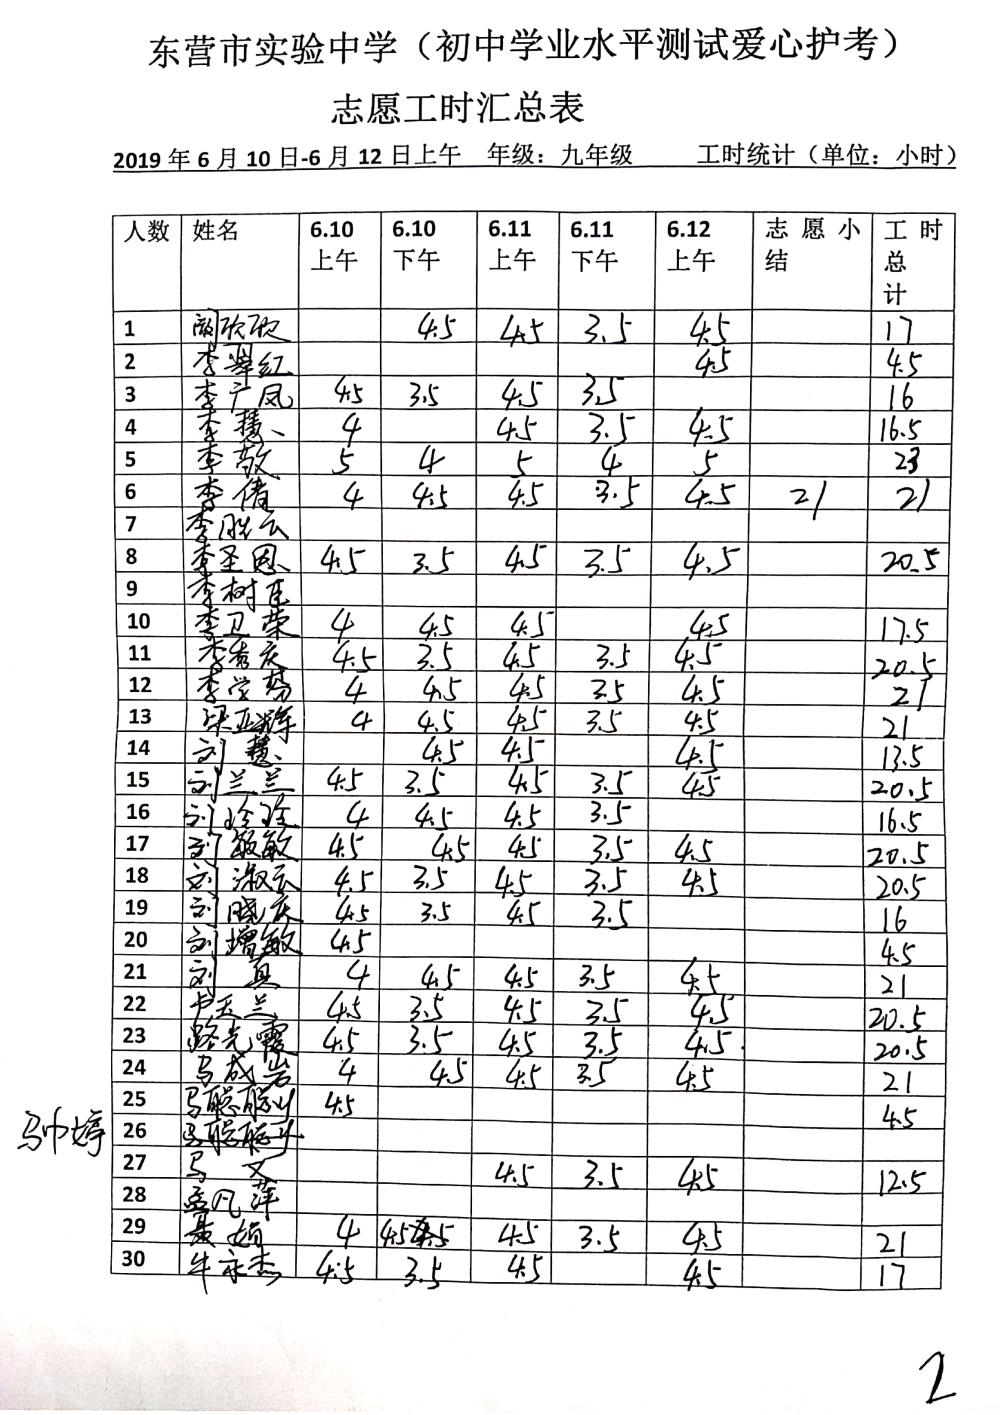 东营市实验中学（初中学业水平测试爱心护考）
志愿工时汇总表
2019 年 6 月 10 日-6 月 12 日上午 年级：九年级 工时统计（单位：小时）
人数 姓名 6.10 上午 6.10 下午 6.11 上午 6.11 下午 6.12 上午 志愿小结 工时总计
1 欣欣 4.5 4.5 3.5 4.5 17
2 李翠红 4.5 4.5
3 李广凤 4.5 3.5 4.5 3.5 16
4 李慧 4 4.5 3.5 4.5 16.5
5 李敬 5 4 5 4 5 23
6 李倩 4 4.5 4.5 3.5 4.5 21 21
7 李胜云
8 李圣恩 4.5 3.5 4.5 3.5 4.5 20.5
9 李树臣
10 李卫荣 4 4.5 4.5 4.5 17.5
11 李秀庆 4.5 3.5 4.5 3.5 4.5 20.5
12 李学 4 4.5 4.5 3.5 4.5 21
13 梁亚辉 4 4.5 4.5 3.5 4.5 21
14 刘慧 4.5 4.5 4.5 13.5
15 刘兰兰 4.5 3.5 4.5 3.5 4.5 20.5
16 刘玲玲 4 4.5 4.5 3.5 16.5
17 刘敏敏 4.5 4.5 4.5 3.5 4.5 20.5
18 刘淑云 4.5 3.5 4.5 3.5 4.5 20.5
19 刘晓庆 4.5 3.5 4.5 3.5 16
20 刘增敏 4.5 4.5
21 刘真 4 4.5 4.5 3.5 4.5 21
22 卢玉兰 4.5 3.5 4.5 3.5 4.5 20.5
23 路光霞 4.5 3.5 4.5 3.5 4.5 20.5
24 马成岩 4 4.5 4.5 3.5 4.5 21
25 马聪聪小 4.5 4.5
马巾婷 26 马聪聪
27 马文 4.5 3.5 4.5 12.5
28 孟凡萍
29 聂娟 4 4.5 4.5 4.5 3.5 4.5 21
30 牛永杰 4.5 3.5 4.5 4.5 17
2